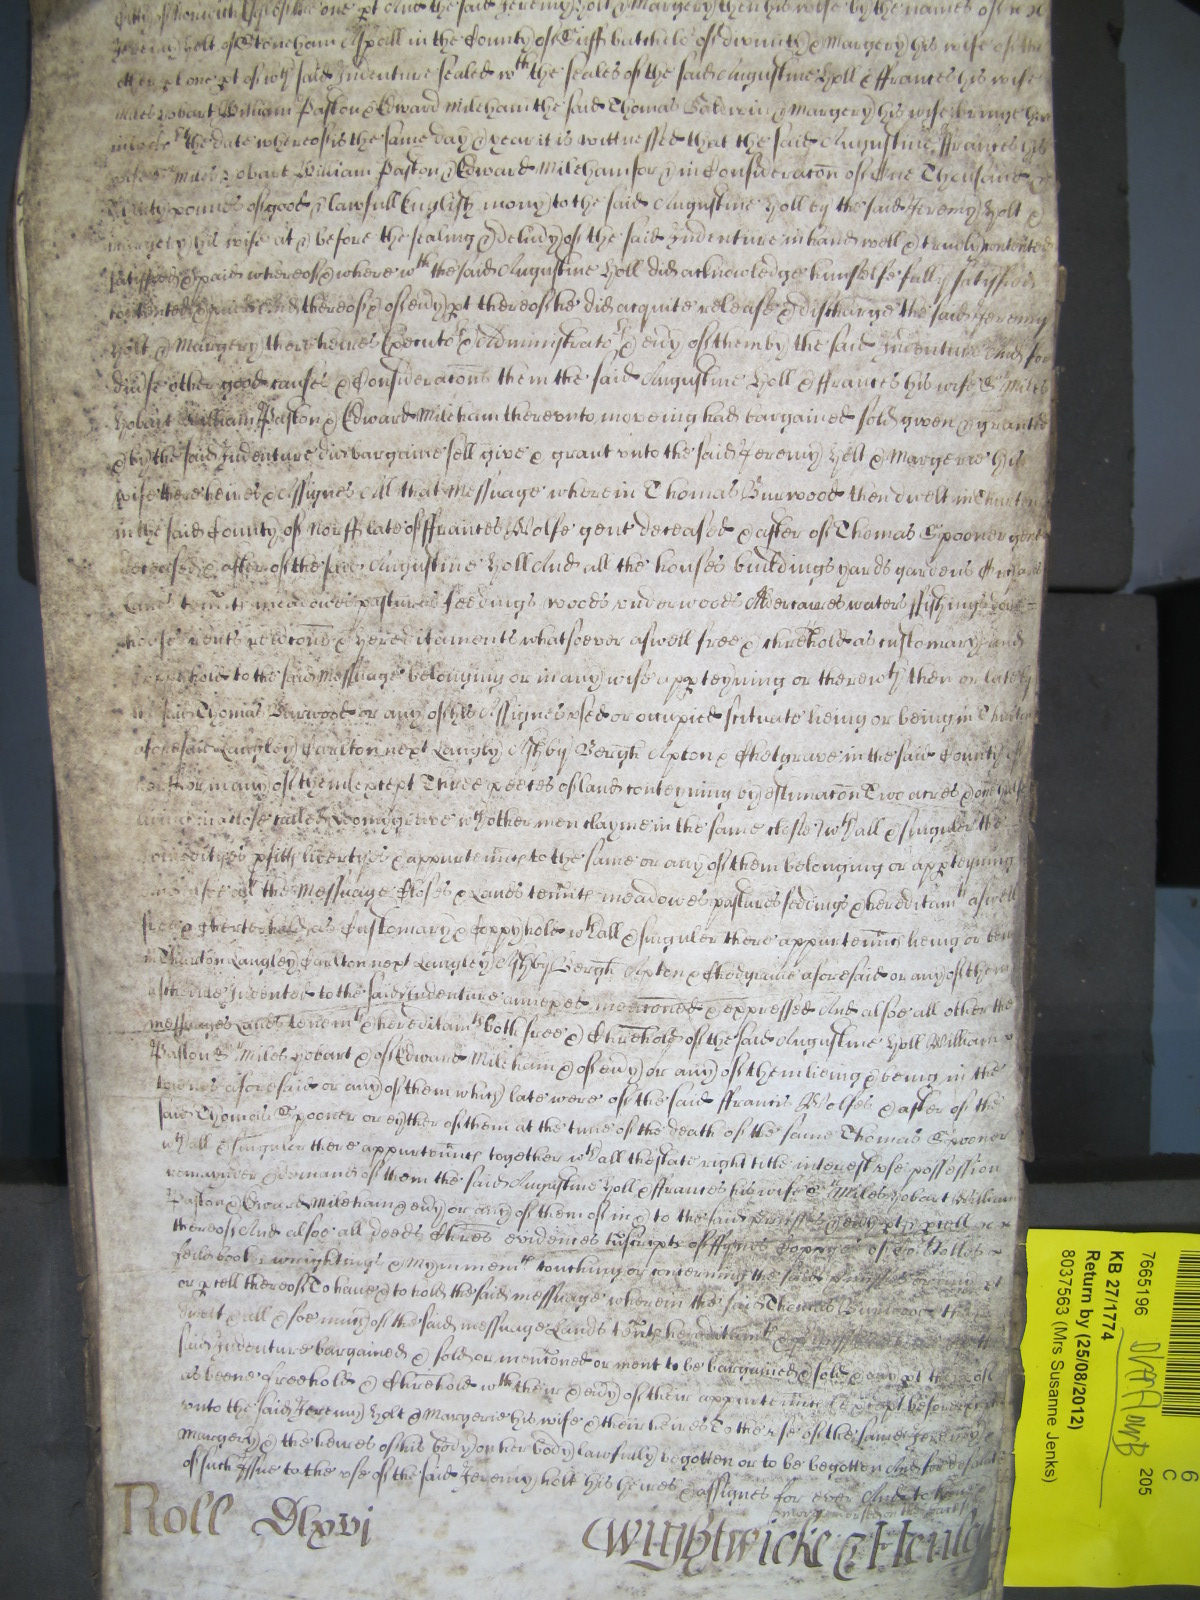 Citty of Norwich Esqs of the one pt And the said Jeremy Holt & Margery then his wife by the names of
Jeremy Holt of Stoneham Aspall in the County of Suff batchelo of divinity & Margery his wife of the
other pt one pt of wch said Indenture sealed wth the seales of the said Augustine Holl & ffrances his wife
Miles Hobart William Paston & Edward Mileham the said Thomas Baldwin & Margery his wife bringe here
the date whereof is the same day & year it is wittnessed that the said Augustine ffrances his
wife Miles Hobart William Paston & Edward Mileham for & in Consideracon of One Thousand
pounds of good & lawfull English mony to the said Augustine Holl by the said Jeremy Holt &
Margery his wife at & before the sealing & delivy of the said Indenture in hand well & truely contented
satisfied & paid whereof & where wth the said Augustine Holl did acknowledge himselfe fully satisfied
contented & paid And thereof & of evry pt thereof he did acquite release & discharge the said Jeremy
Holt & Margery there heires Executo & Administrato & evry of them by the said Indenture And for
divse other good causes & Consideracons them the said Augustine Holl & ffrances his wife & Miles
Hobart William Paston & Edward Mileham therevnto moveing had bargained sold given & granted
& by the said Indenture did bargaine sell give & grant vnto the said Jeremy Holt & Margerie his
wife there heires & Assignes All that Messuage wherein Thomas Burwood then dwelt in Thurton
in the said County of Norff late of ffrances Wolfe gent deceased & after of Thomas Spooner gent
deceased & after of the said Augustine Holl And all the houses buildings yards gardens
Lands tenemts meadowes pastures feedings woods vnderwoods Aldercarres waters ffishings
rents revcons & Hereditaments whatsoever aswell free & chrehold as customary and
Coppyhold to the said Messuage belonging or in any wise appteyning or therewth then or lately
the said Thomas Burwood or any of his Assignes vsed or occupied scituate lieing or being in Thurton
aforesaid Langley Carlton next Langley Ashby Bergh Apton & Chetgrave in the said County of
Norff or in any of them except Three peeces of land conteyning by estimacon Two acres & one halfe
lieing in a close called wch other men clayme in the same close wth all & singuler the
Comodityes pfitts libertyes & appurtennces to the same or any of them belonging or appteyning
all the Messuage Closes & Lands tenmts meadowes pastures fedings & hereditamts aswell
free & Charterhold as Customary & Coppyhold wth all & singuler there appurtennces lieing or being
in Thurton Langley Carlton next Langley Ashby Bergh Apton & Chedgrave aforesaid or any of them
in a scedule Indented to the said Indenture annexed mencioned & expressed And alsoe all other the
messuages Lands tenemts & hereditamts both free & Chrehold of the said Augustine Holl William
Paston & Miles Hobart & of Edward Mileham & of evry or any of them lieing & being in the
townes aforesaid or any of them which late were of the said ffrancis Wolfes & after of the
said Thomas Spooner or eyther of them at the time of the death of the same Thomas Spooner
wth all & singuler there appurtennces together wth all thestate right title interest vse possession
remainder & demand of them the said Augustine Holl & ffrances his wife & Miles Hobart William
Paston & Edward Mileham & evry or any of them of in & to the said pmisses & evry pt & pcell
thereof And alsoe all deeds Chres evidences trscripts of ffynes Coppyes of Cort Rolles
feild bookes wrightings & Mynnements touching or concerning the said pmisses or any pt
or pcell thereof To have & to hold the said messuage wherein the said Thomas Burwood then
dwelt & all & soe many of the said messuage Lands tenmts hereditamts & pmisses
said Indenture bargained & sold or mentoned or ment to be bargained & sold & any pt thereof
as beene freehold & Chrehold wth their & evry of their appurtennces except before except
vnto the said Jeremy Holt & Margerie his wife & their heires To the vse of the same Jeremy &
Margery & the heires of his body on her body lawfully begotten or to be begotten And for default
of such Issue to the vse of the said Jeremy holt his heires & assignes for ever And to
Roll Dlxvj
Wightwicke & Henley
7665196
KB 27/1774
Return by (25/08/2012)
8037563 (Mrs Susanne Jenks)
205
6
C